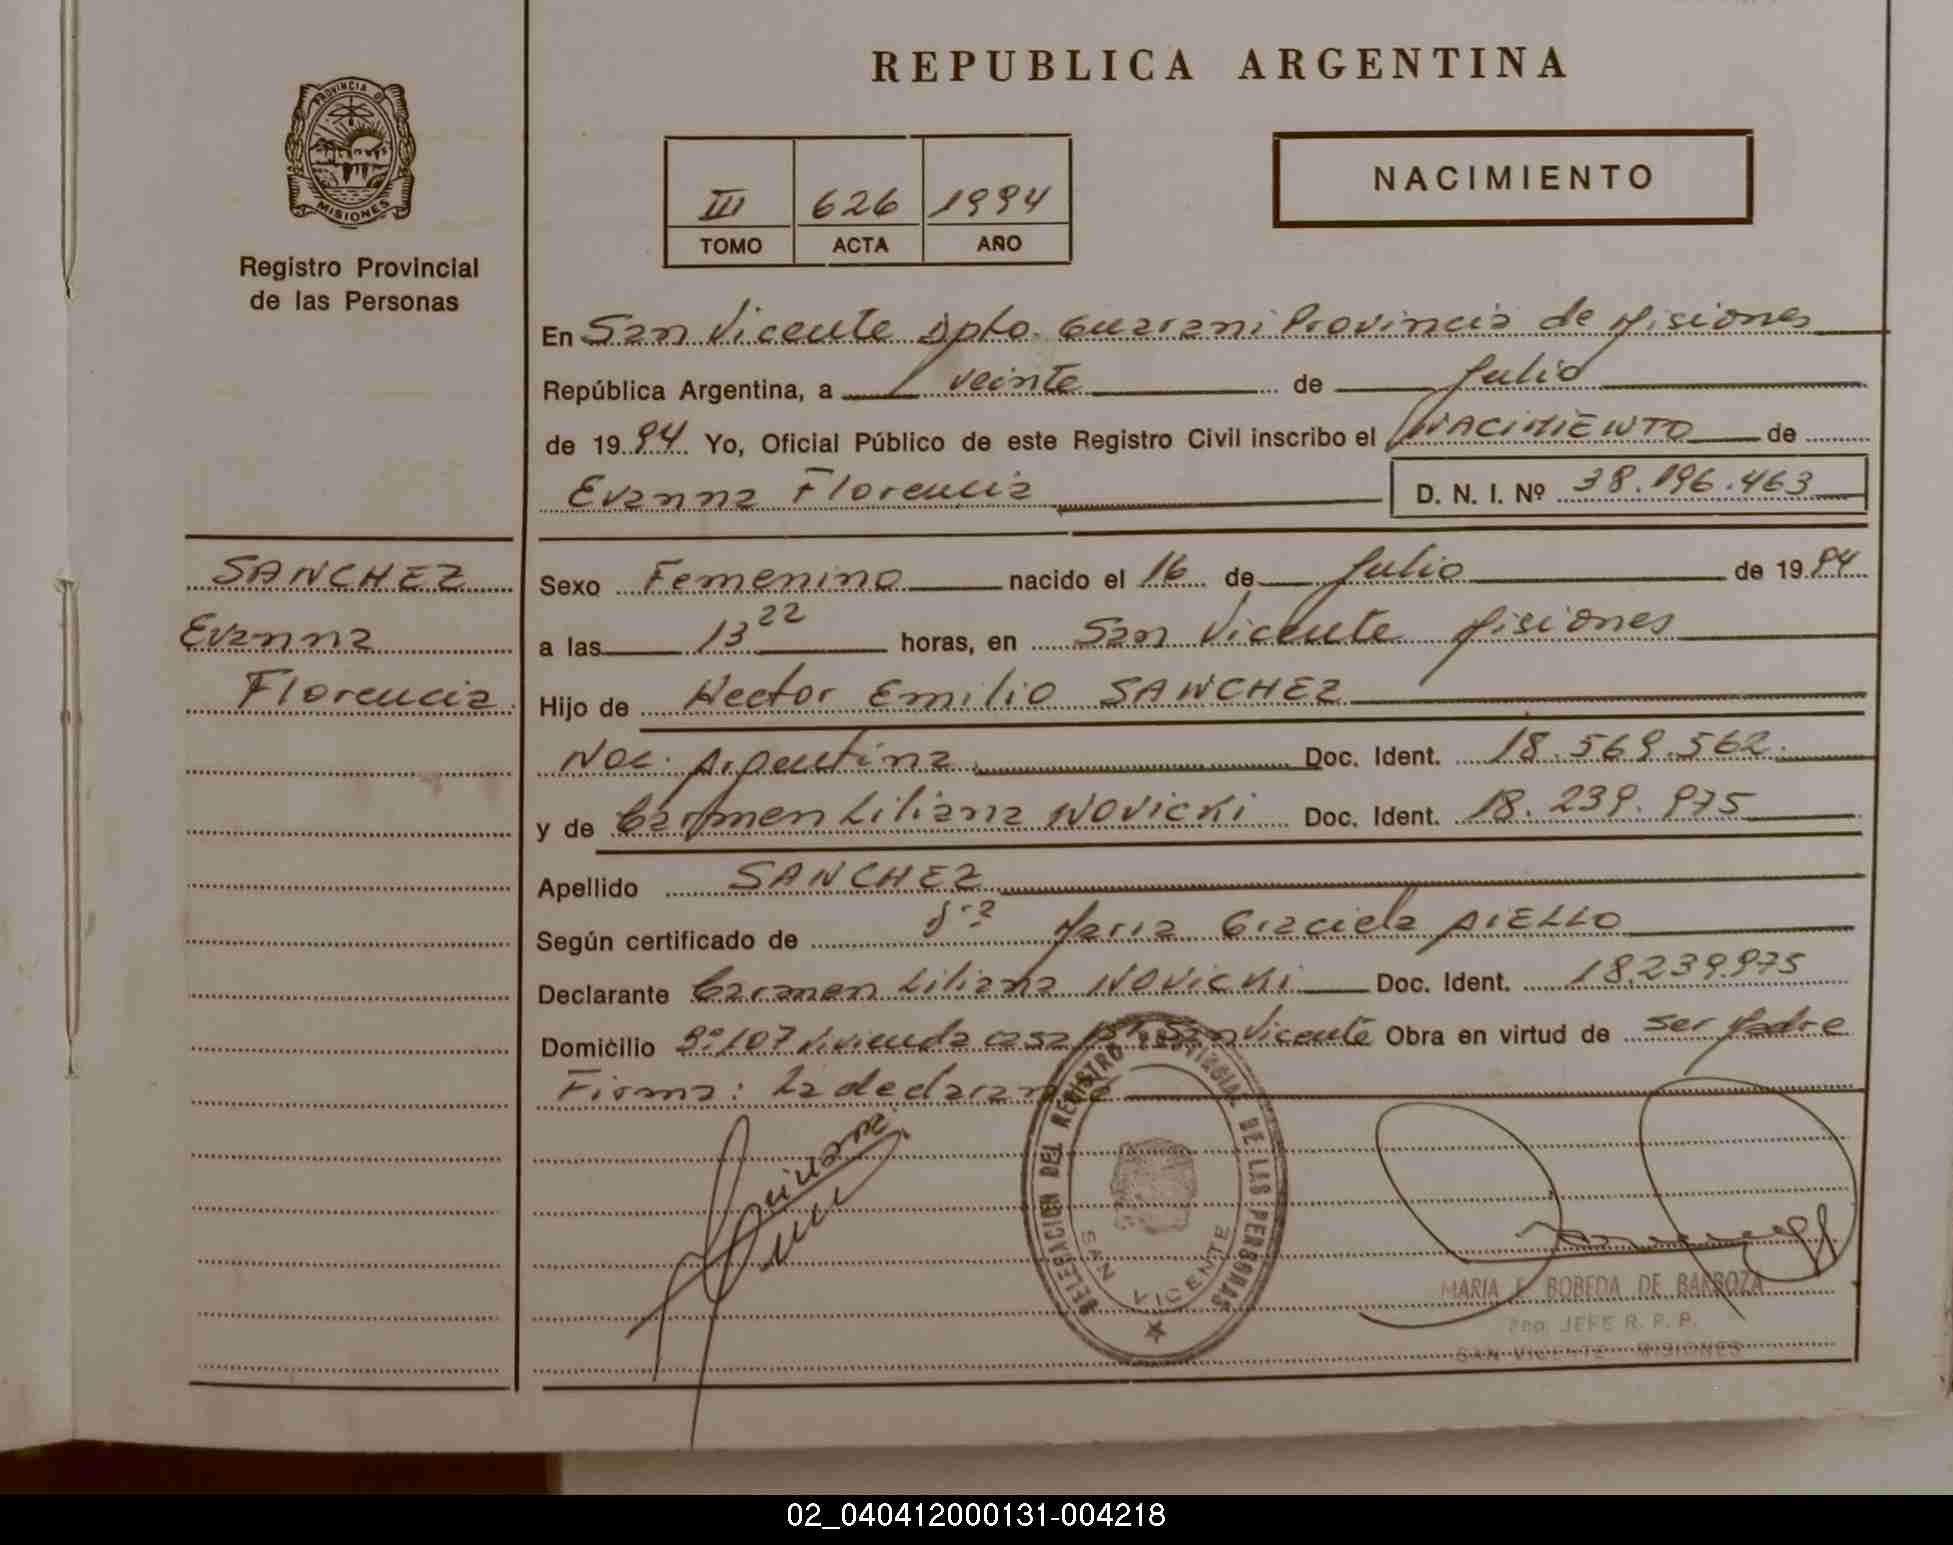 REPUBLICA ARGENTINA
PROVINCIA DE
MISIONES
Registro Provincial
de las Personas
III 626 1994
TOMO ACTA AÑO
NACIMIENTO
En San Vicente Dpto. Guarani Provincia de Misiones
República Argentina, a veinte de Julio
de 1994 Yo, Oficial Público de este Registro Civil inscribo el NACIMIENTO de
Evanna Florencia D. N. I. Nº 38.196.463
SANCHEZ
Evanna
Florencia
Sexo Femenino nacido el 16 de Julio de 1994
a las 13 22 horas, en San Vicente Misiones
Hijo de Hector Emilio SANCHEZ
Nac. Argentina Doc. Ident. 18.569.562.
y de Carmen Liliana NOVICKI Doc. Ident. 18.239.975
Apellido SANCHEZ
Según certificado de Maria Graciela AIELLO
Declarante Carmen Liliana NOVICKI Doc. Ident. 18.239.975
Domicilio 107 vivienda casa San Vicente Obra en virtud de ser Madre
Firma: La declarante
DELEGACION DEL REGISTRO PROVINCIAL DE LAS PERSONAS
SAN VICENTE
MARIA E. BOBEDA DE BARBOZA
2do. JEFE R. P. P.
SAN VICENTE MISIONES
02_040412000131-004218